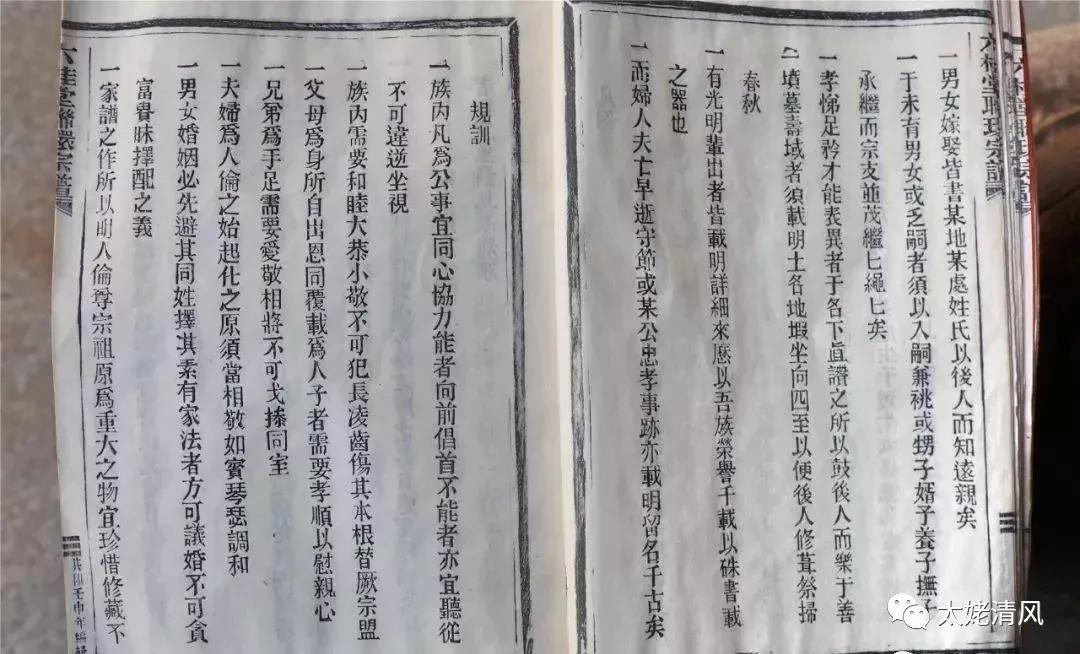 一男女嫁娶皆書某地某處姓氏以後人而知遠親矣
一于未有男女或乏嗣者須以入嗣兼祧或甥子婿子養子撫子
承繼而宗支並茂繼匕繩匕矣
一孝悌足矜才能表異者于各下直讚之所以鼓後人而樂于善
一墳墓壽域者須載明土名地塅坐向四至以便後人修葺祭掃
春秋
一有光明輩出者皆載明詳細來歷以吾族榮譽千載以硃書載
之器也
一而婦人夫亡早逝守節或某公忠孝事跡亦載明留名千古矣
規訓
一族內凡爲公事宜同心協力能者向前倡首不能者亦宜聽從
不可違逆坐視
一族內需要和睦大恭小敬不可犯長凌齒傷其本根替厥宗盟
一父母爲身所自出恩同覆載爲人子者需要孝順以慰親心
一兄弟爲手足需要愛敬相將不可戈搸同室
一夫婦爲人倫之始起化之原須當相敬如賓琴瑟調和
一男女婚姻必先避其同姓擇其素有家法者方可議婚不可貪
富貴昧擇配之義
一家譜之作所以明人倫尊宗祖原爲重大之物宜珍惜修藏不
六桂堂聯宗譜
壬申年編輯
太姥清风